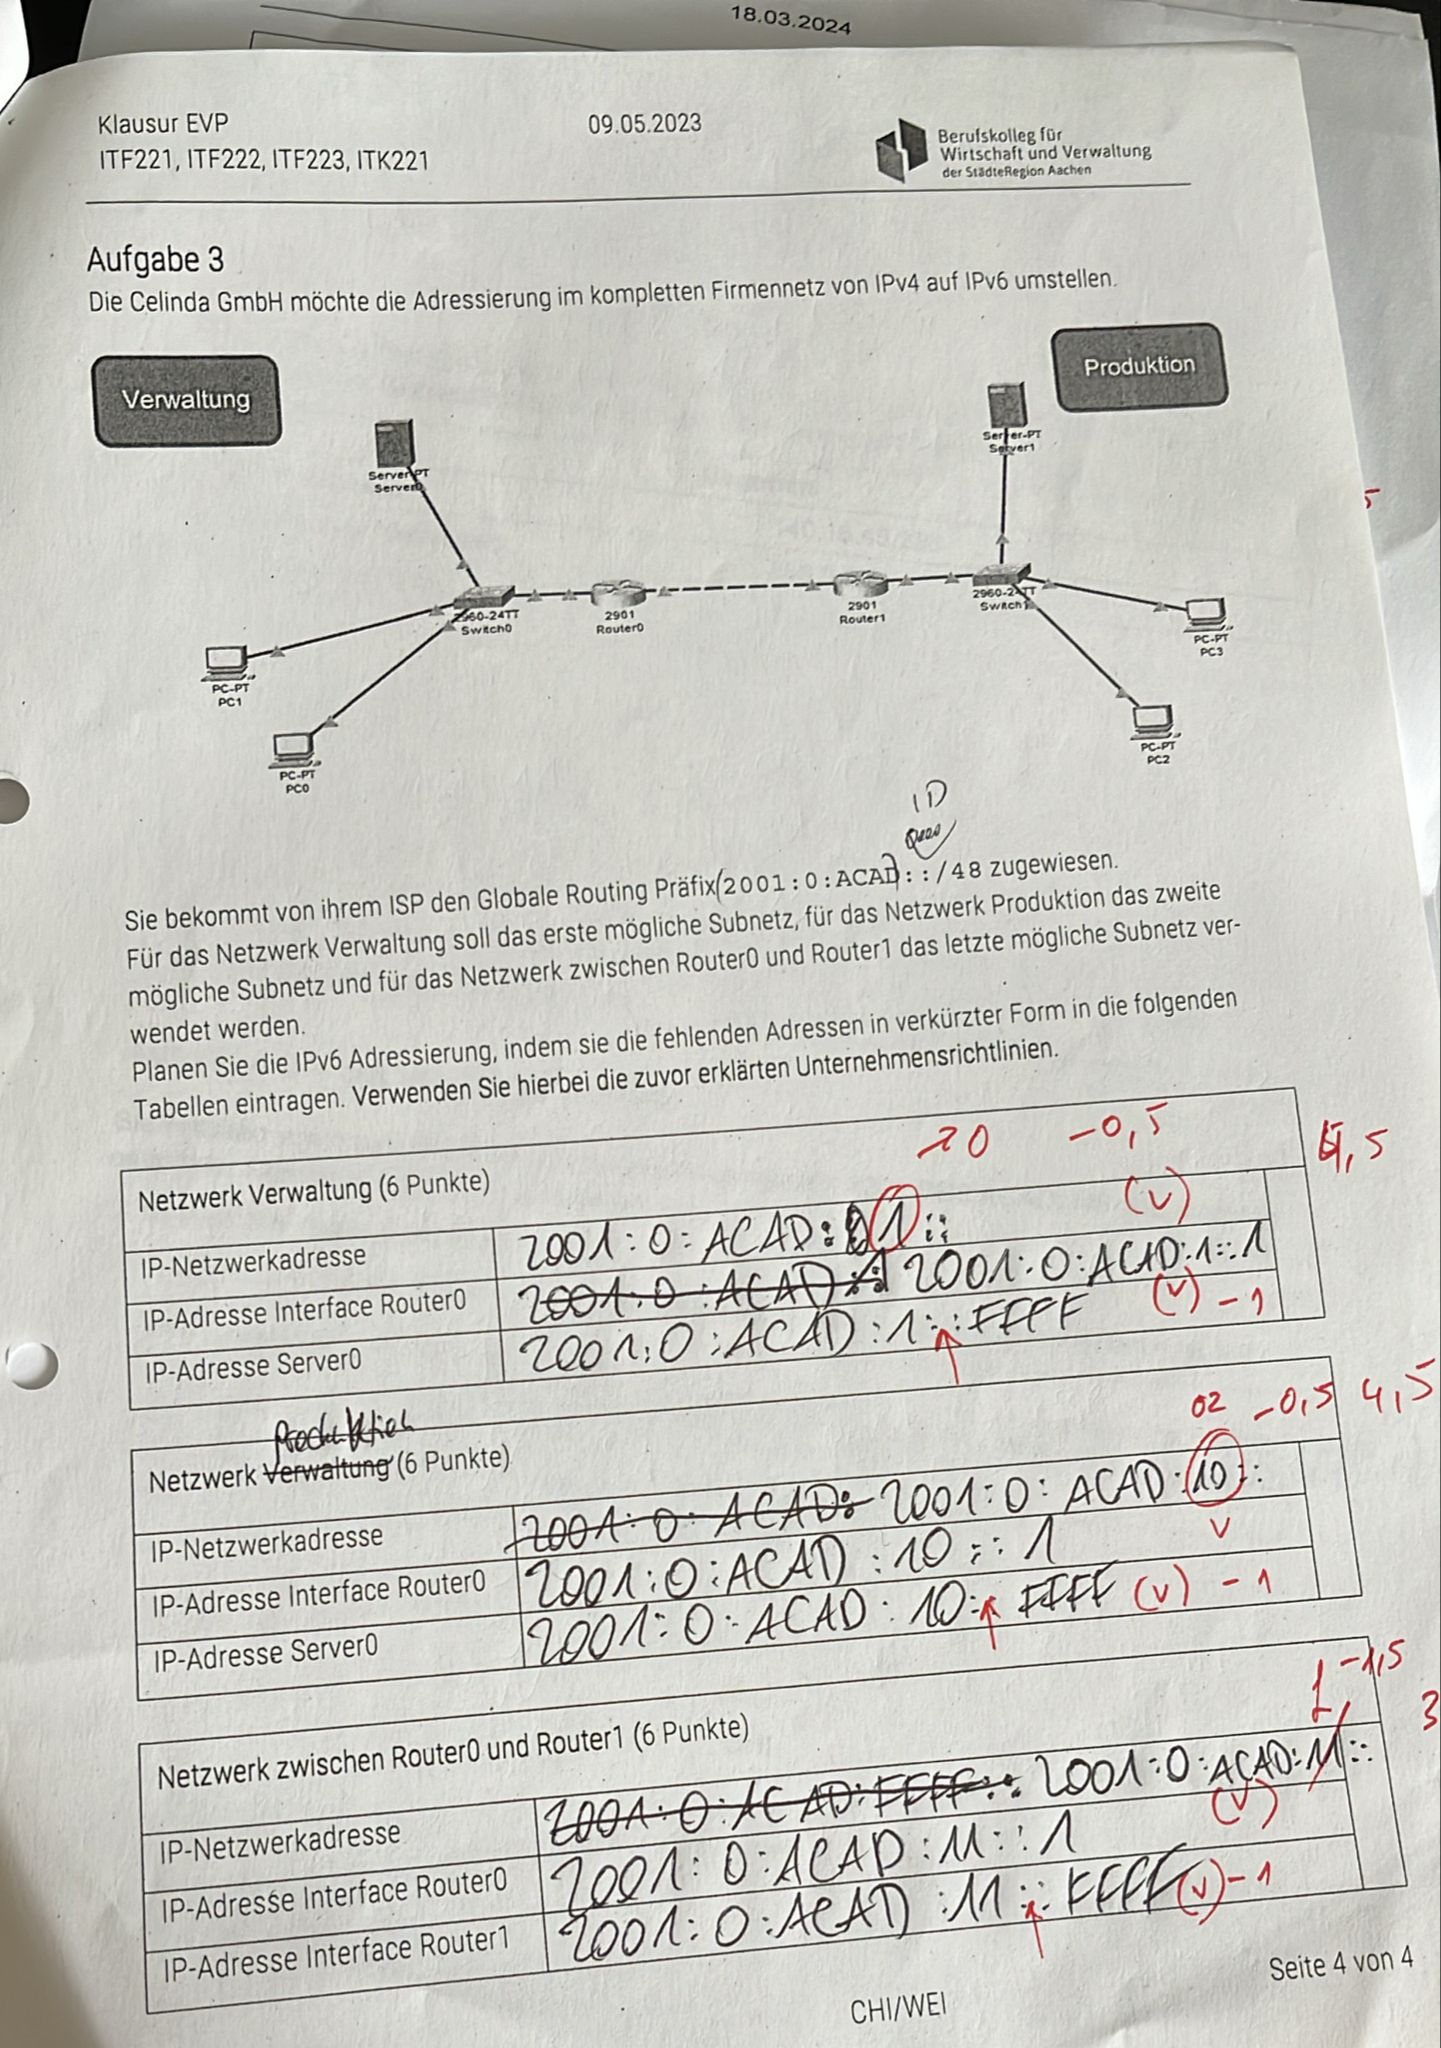 18.03.2024
Klausur EVP
09.05.2023
ITF221, ITF222, ITF223, ITK221
Berufskolleg für
Wirtschaft und Verwaltung
der StädteRegion Aachen
Aufgabe 3
Die Celinda GmbH möchte die Adressierung im kompletten Firmennetz von IPv4 auf IPv6 umstellen.
Verwaltung
Produktion
Server-PT
Server0
Server-PT
Server1
2960-24TT
Switch0
2901
Router0
2901
Router1
2960-24TT
Switch1
PC-PT
PC3
PC-PT
PC1
PC-PT
PC2
PC-PT
PC0
ID
Sie bekommt von ihrem ISP den Globale Routing Präfix(2001:0:ACAD)::/48 zugewiesen.
Für das Netzwerk Verwaltung soll das erste mögliche Subnetz, für das Netzwerk Produktion das zweite
mögliche Subnetz und für das Netzwerk zwischen Router0 und Router1 das letzte mögliche Subnetz ver-
wendet werden.
Planen Sie die IPv6 Adressierung, indem sie die fehlenden Adressen in verkürzter Form in die folgenden
Tabellen eintragen. Verwenden Sie hierbei die zuvor erklärten Unternehmensrichtlinien.
-0,5
4,5
Netzwerk Verwaltung (6 Punkte)
(v)
IP-Netzwerkadresse 2001:0:ACAD:1::
IP-Adresse Interface Router0 2001:0:ACAD 2001:0:ACAD:1::1
IP-Adresse Server0 2001:0:ACAD:1::FFFF (v) -1
Produktion
02 -0,5 4,5
Netzwerk Verwaltung (6 Punkte)
IP-Netzwerkadresse 2001:0:ACAD: 2001:0:ACAD:10::
IP-Adresse Interface Router0 2001:0:ACAD:10::1 v
IP-Adresse Server0 2001:0:ACAD:10: FFFF (v) -1
-1,5
3
Netzwerk zwischen Router0 und Router1 (6 Punkte)
IP-Netzwerkadresse 2001:0:ACAD:FFFF:: 2001:0:ACAD:11::
(v)
IP-Adresse Interface Router0 2001:0:ACAD:11::1
IP-Adresse Interface Router1 2001:0:ACAD:11::FFFF (v) -1
Seite 4 von 4
CHI/WEI